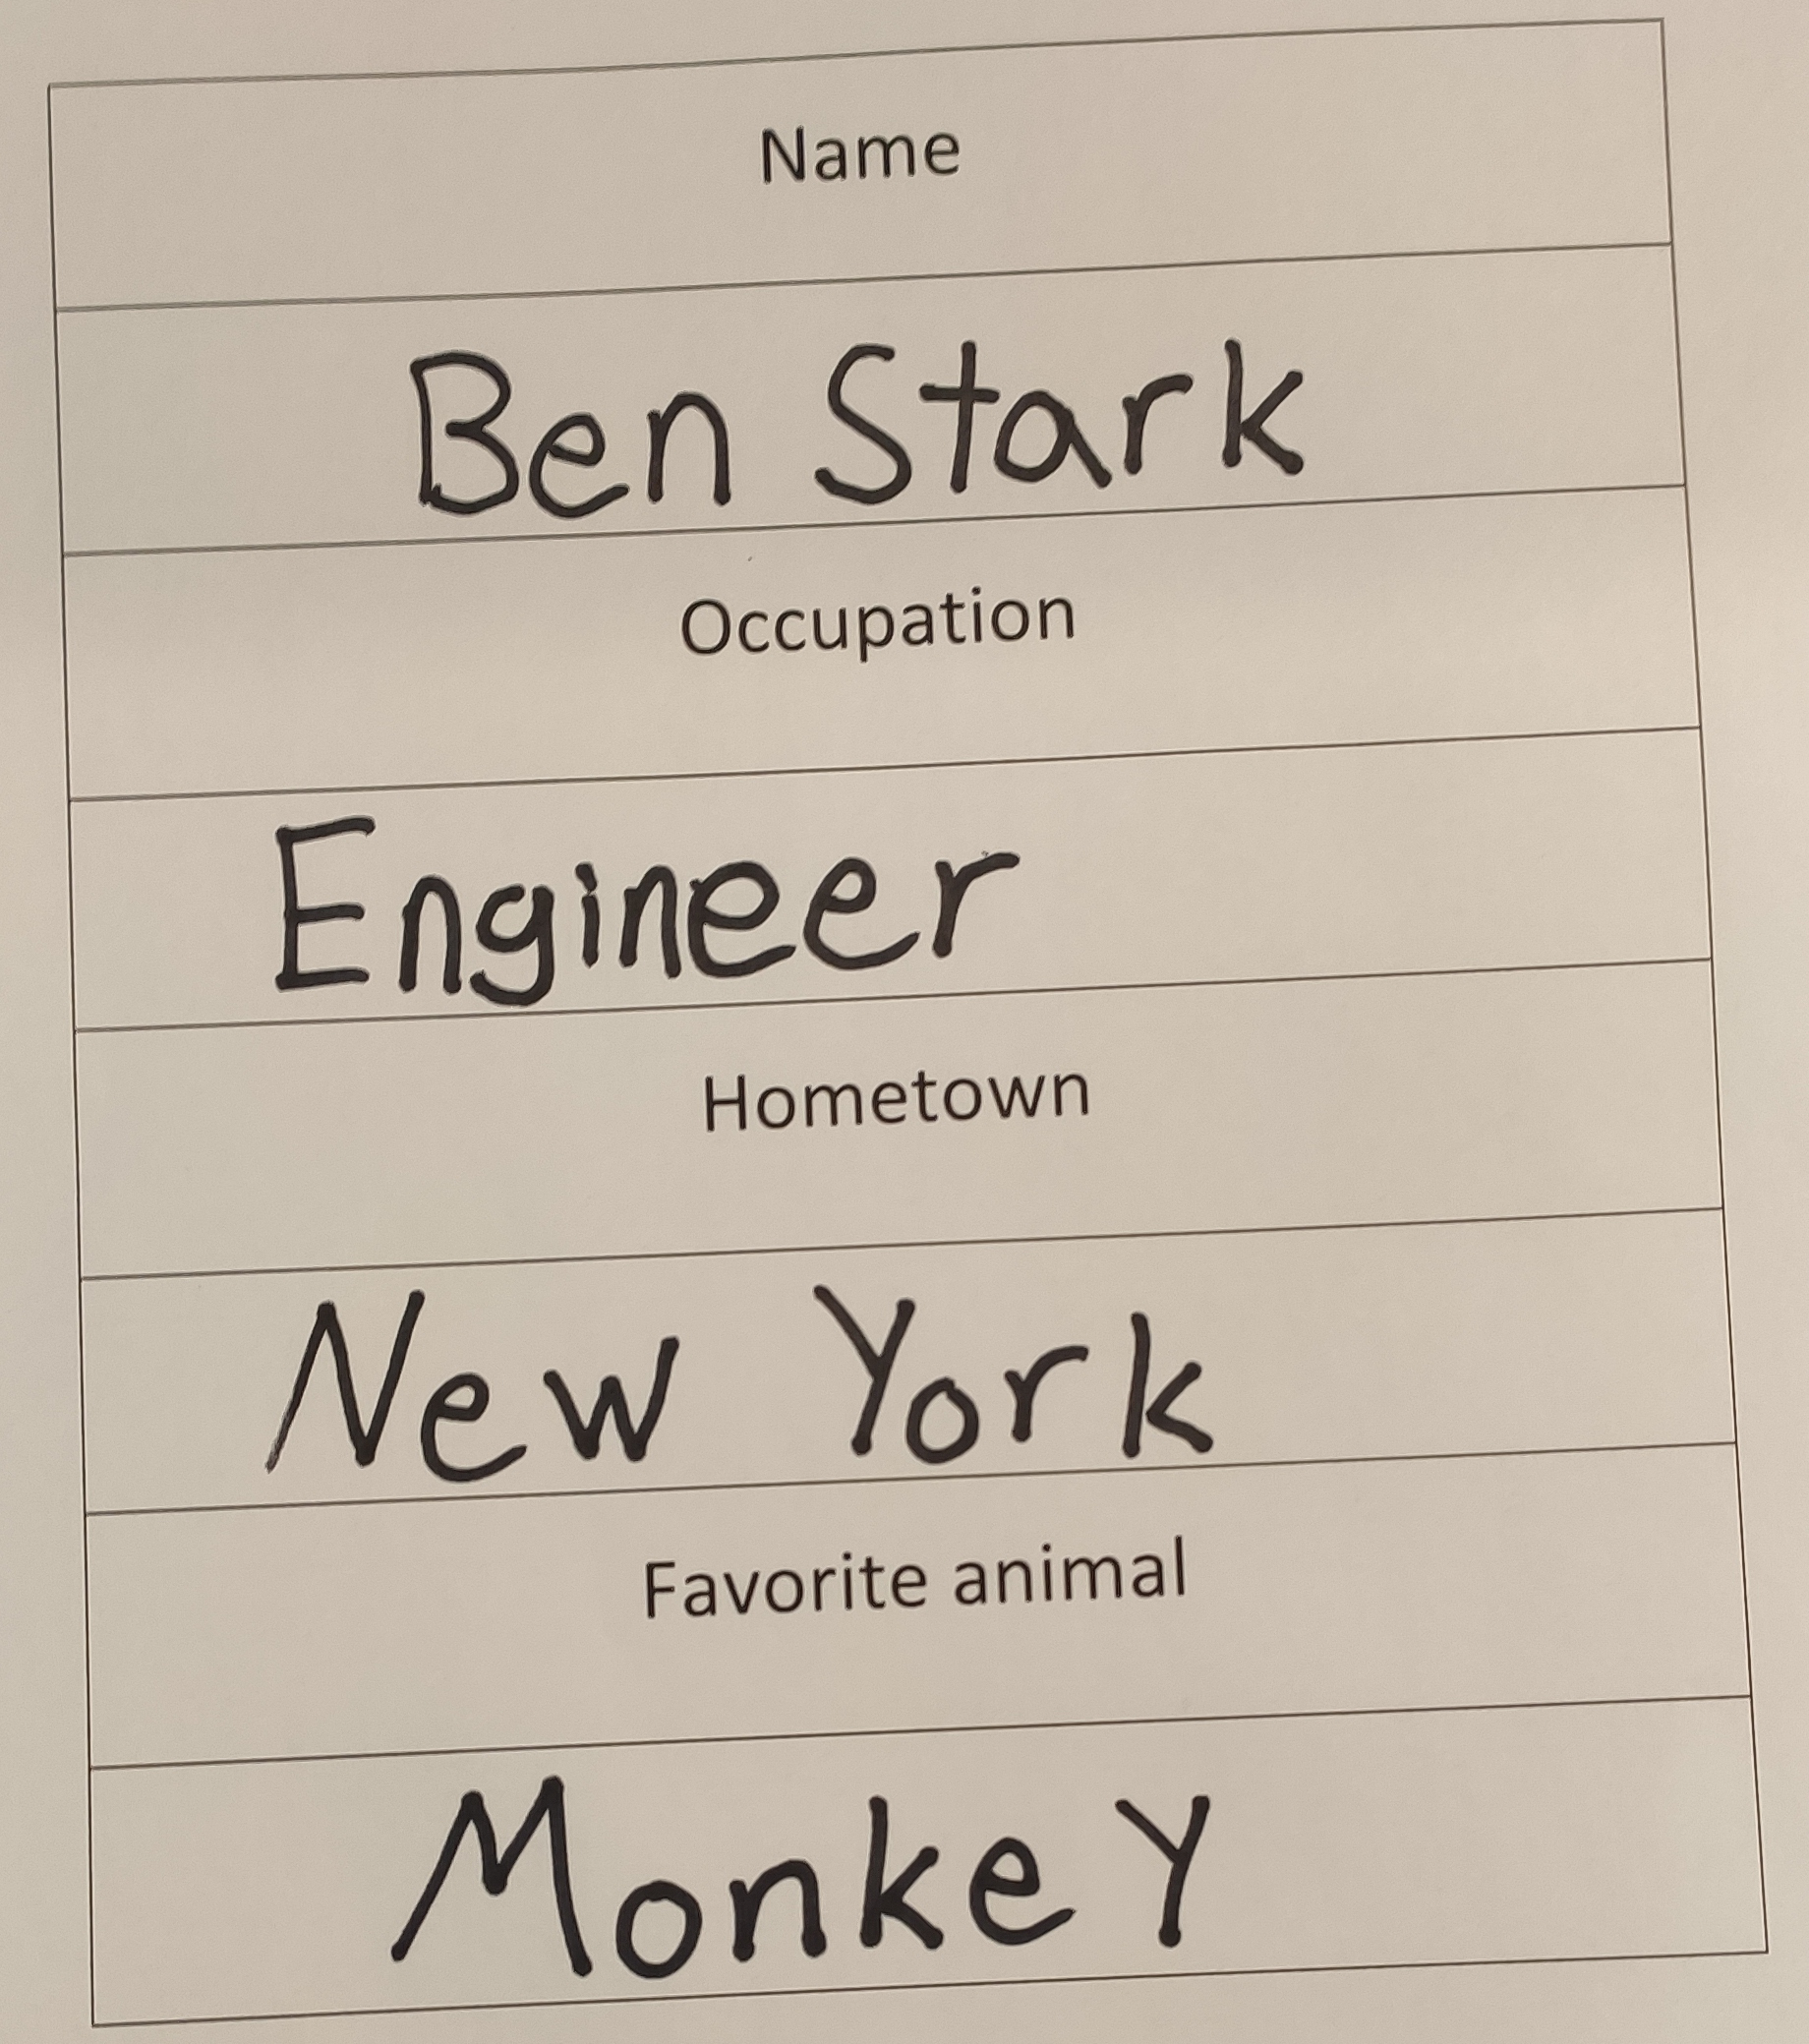 Name
Ben Stark
Occupation
Engineer
Hometown
New York
Favorite animal
MonkeY